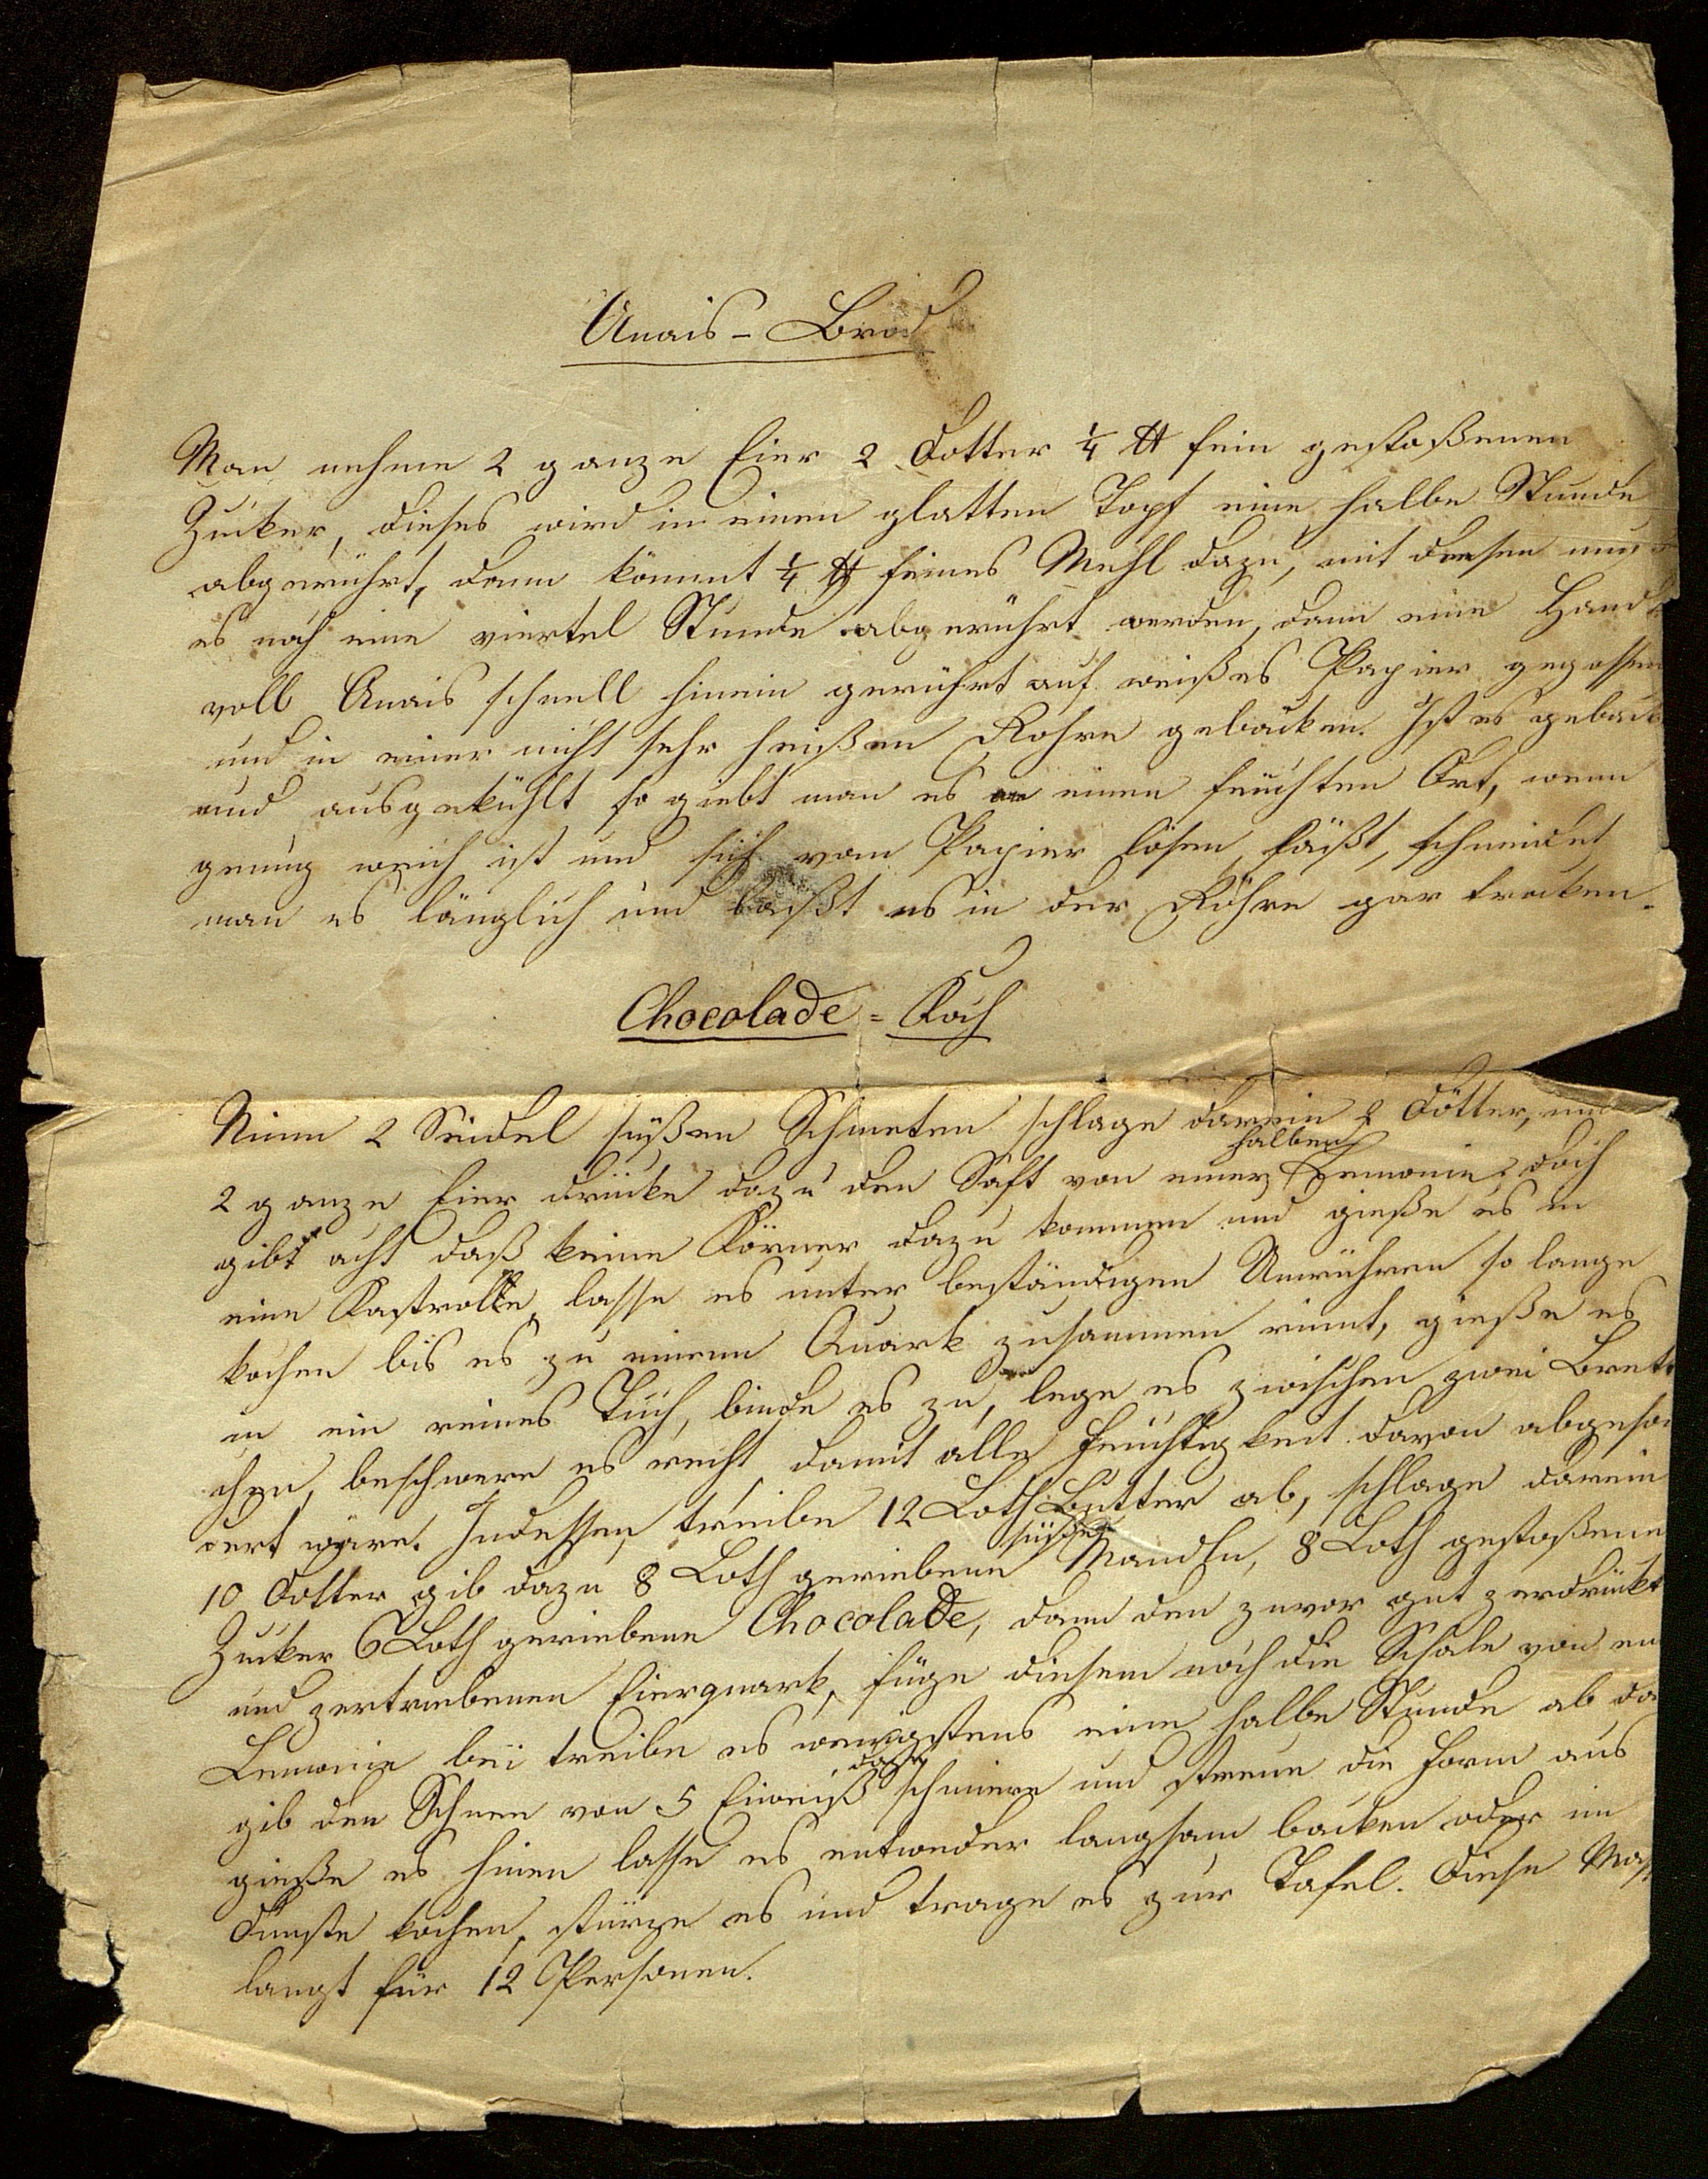 Anais-Brod
Man nehme 2 ganze Eier 2 Dotter ¼ ℔ fein gestoßenen
Zucker, dieses wird in einen glatten Topf eine halbe Stunde
abgerührt, dann kömmt ¼ ℔ feines Mehl dazu, mit diesen
es noch eine viertel Stunde abgerührt werden, dann eine Hand
voll Anais schnell hinein gerührt auf weißes Papier gegossen
und in einer nicht sehr heißen Röhre gebacken. Ist es geback
und ausgekühlt so giebt man es an einen feuchten Ort, wenn
genug weich ist und sich vom Papier lösen läßt, schneidet
man es länglich und läßt es in der Röhre gar trocken.
Chocolade = Koch
Nimm 2 Seidel süßen Schmeten schlage darein 2 Dötter, und
2 ganze Eier drücke dazu den Saft von einer halben Lemonie, doch
gibt acht daß keine Körner dazu kommen und gieße es in
eine Kastrolle, lasse es unter beständigen Umrühren so lange
kochen bis es zu einem Quark zusammen rinnt, gieße es
in ein reines Tuch, binde es zu, lege es zwischen zwei Brett
chen, beschwere es recht damit alle Feuchtigkeit davon abgeson
dert wäre. Indessen treibe 12 Loth Butter ab, schlage darein
10 Dotter gib dazu 8 Loth geriebene süße Mandln, 8 Loth gestoßenen
Zucker 6 Loth geriebene Chocolade, dann den zuvor gut zerdrückt
und zertriebenen Eierquark, füge diesem noch die Schale von ein
Lemonie bei treibe es wenigstens eine halbe Stunde ab da
gib den Schnee von 5 Eiweiß dazu schmiere und streue die Form aus
gieße es hinen lasse es entweder langsam backen oder im
Dunste kochen, stürze es und trage es zur Tafel. Diese Mass
langt für 12 Personen.